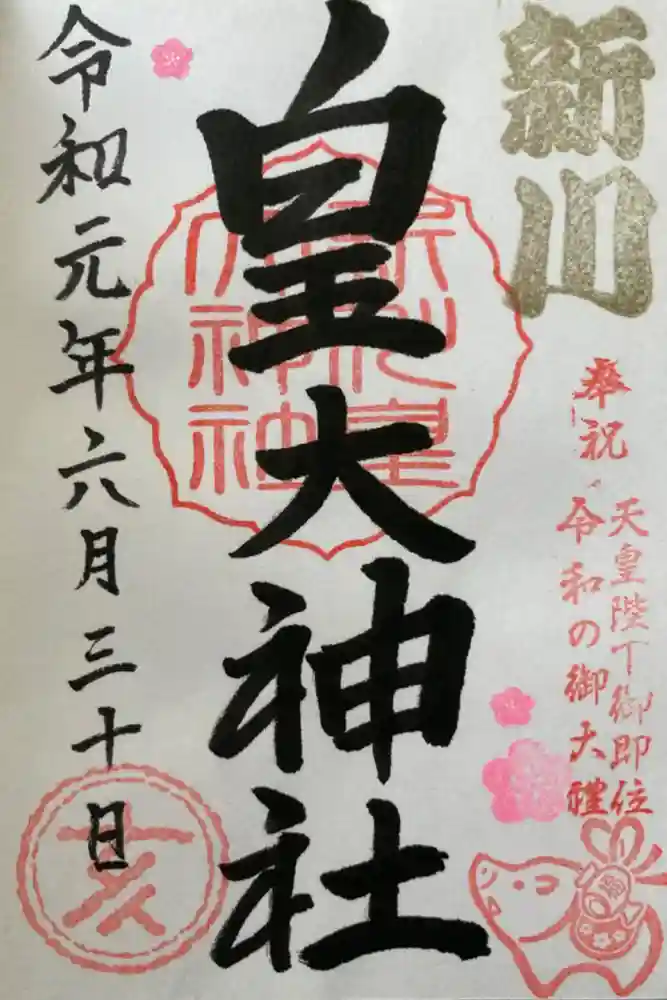 新川
奉祝
天皇陛下御即位
令和の御大礼
皇大神社
新川皇
大神社
亥
令和元年六月三十日